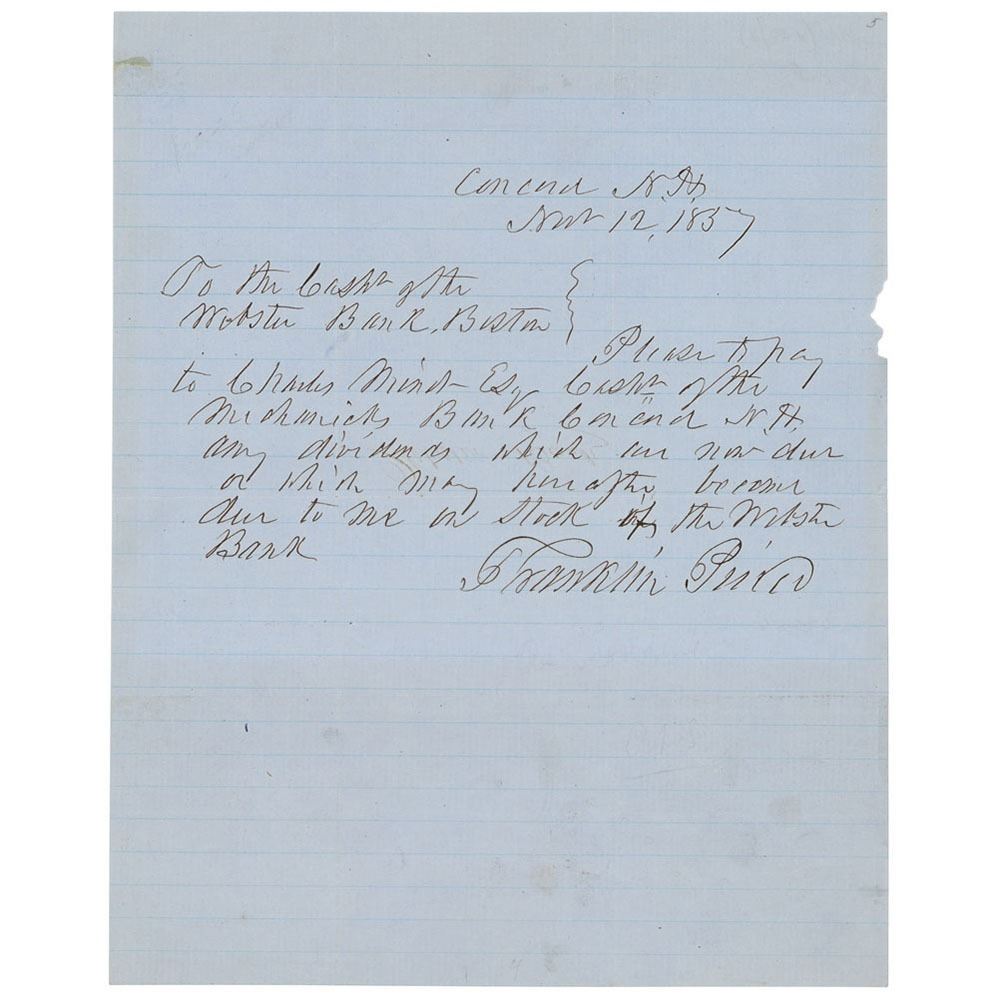 5
Concord N.H.
Novr 12, 1857
To the Cashr of the
Webster Bank, Boston
Please to pay
to Charles Minot Esq Cashr of the
Mechanicks Bank Concord N.H.
any dividends which are now due
or which may hereafter become
due to me on Stock of the Webster
Bank
Franklin Pierce